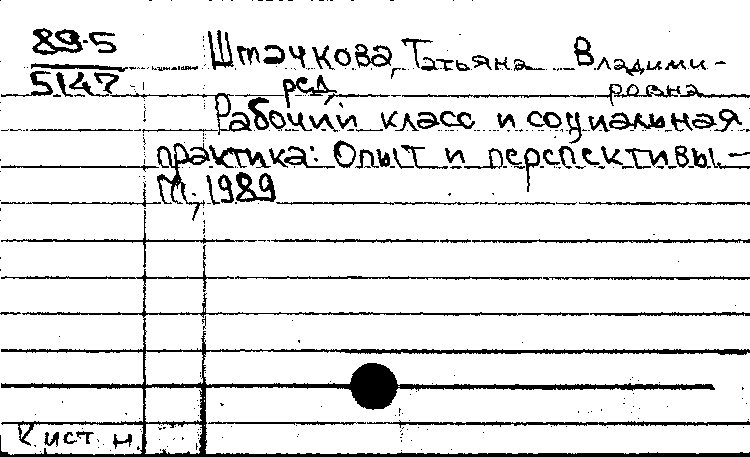 89-5
5147
Штачкова, Татьяна Владими-
ровна
ред.
Рабочий класс и социальная
практика: Опыт и перспективы. –
М., 1989
К ист. н.